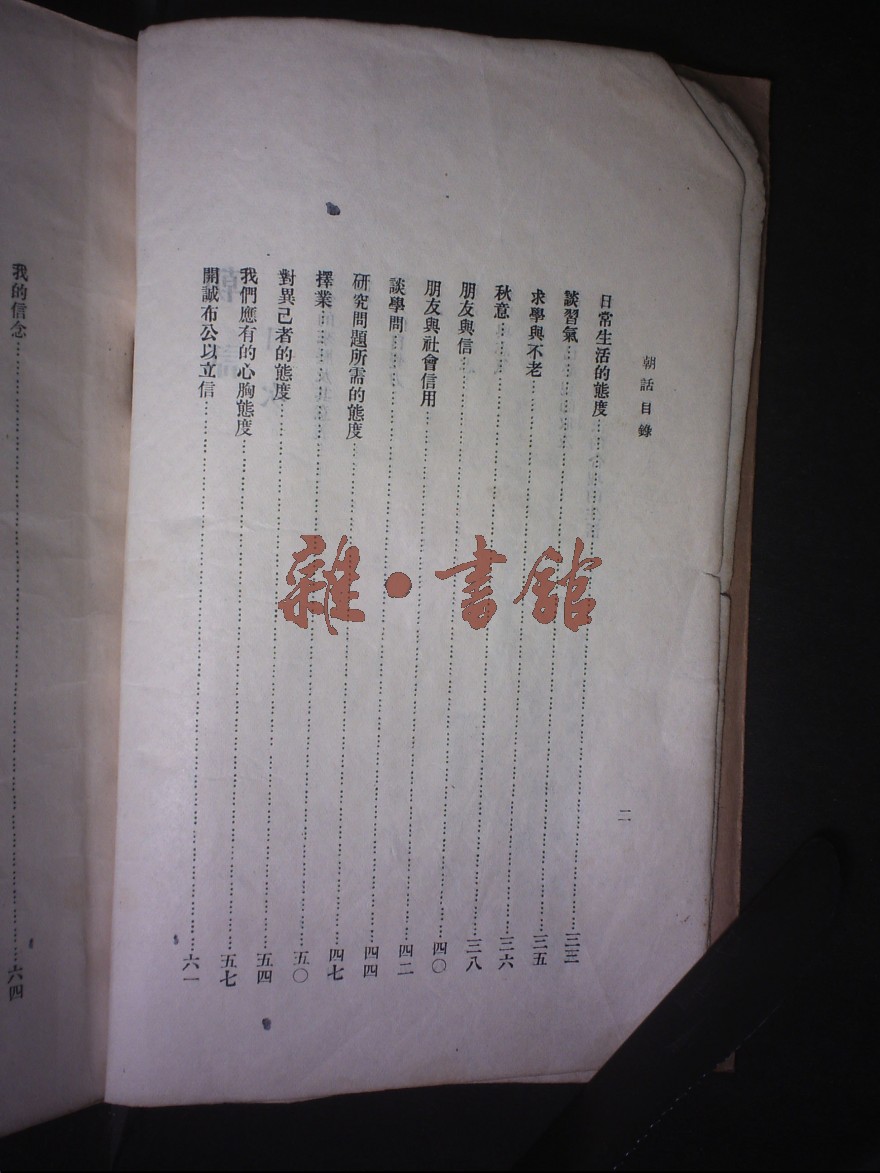 朝話目錄 二
日常生活的態度……三三
談習氣……三五
求學與不老……三六
秋意……三八
朋友與信……四〇
朋友與社會信用……四二
談學問……四四
研究問題所需的態度……四七
擇業……五〇
對異己者的態度……五四
我們應有的心胸態度……五七
開誠布公以立信……六一
我的信念……六四
雜·書館